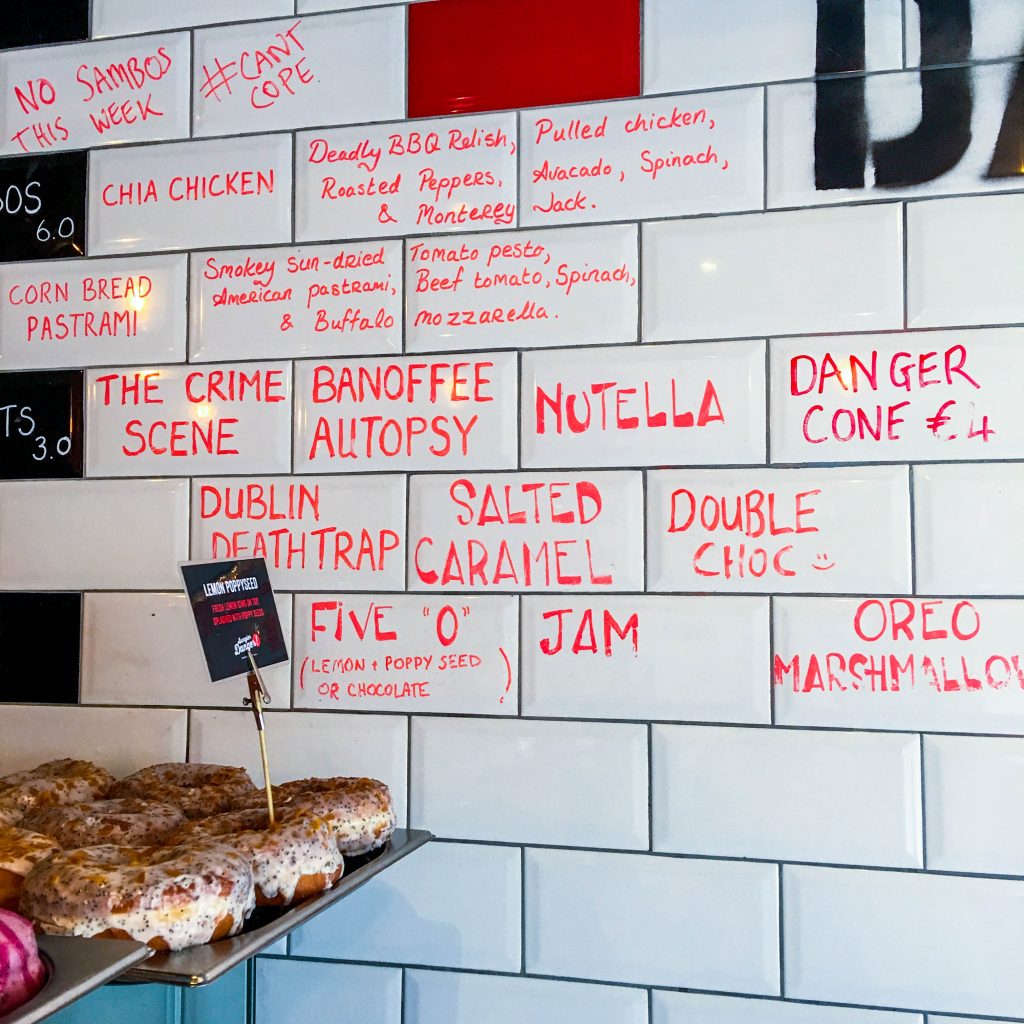 NO SAMBOS
THIS WEEK
#CANT
COPE.
DA
OS
6.0
CHIA CHICKEN
Deadly BBQ Relish,
Roasted Peppers,
& Monterey
Pulled chicken,
Avocado, Spinach,
Jack.
CORN BREAD
PASTRAMI
Smokey Sun-dried
American pastrami,
& Buffalo
Tomato pesto,
Beef tomato, Spinach,
mozzarella.
TS
3.0
THE CRIME
SCENE
BANOFFEE
AUTOPSY
NUTELLA
DANGER
CONE €4
DUBLIN
DEATHTRAP
SALTED
CARAMEL
DOUBLE
CHOC
FIVE "O"
(LEMON + POPPY SEED
OR CHOCOLATE)
JAM
OREO
MARSHMALLOW
LEMON POPPYSEED
FRESH LEMON ICING ON TOP,
SPLASHED WITH POPPY SEEDS
Aungier
Danger